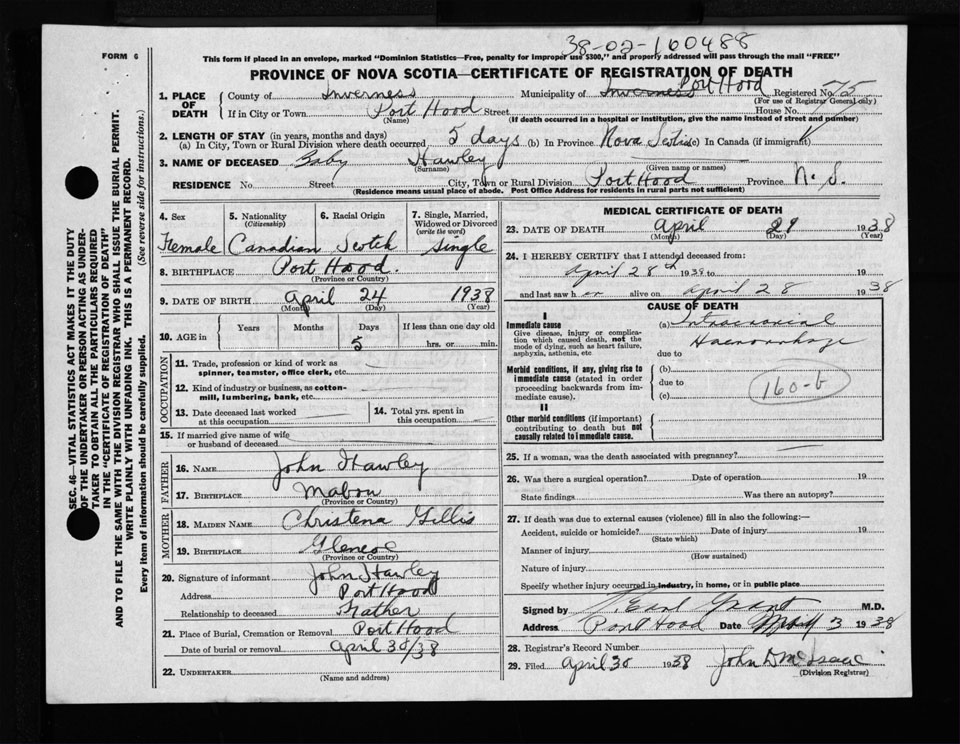 38-02-160488
FORM 6
This form if placed in an envelope, marked "Dominion Statistics—Free, penalty for improper use $300," and properly addressed will pass through the mail "FREE"
PROVINCE OF NOVA SCOTIA—CERTIFICATE OF REGISTRATION OF DEATH
1. PLACE OF DEATH County of Inverness Municipality of Inverness Port Hood Registered No. 75
(For use of Registrar General only)
If in City or Town Port Hood Street House No.
(Name) (If death occurred in a hospital or institution, give the name instead of street and number)
2. LENGTH OF STAY (in years, months and days)
(a) In City, Town or Rural Division where death occurred 5 days (b) In Province Nova Scotia (c) In Canada (if immigrant)
3. NAME OF DECEASED Baby Hawley
(Surname) (Given name or names)
RESIDENCE No Street City, Town or Rural Division Port Hood Province N.S.
(Residence means usual place of abode. Post Office Address for residents in rural parts not sufficient)
4. Sex 5. Nationality (Citizenship) 6. Racial Origin 7. Single, Married, Widowed or Divorced (write the word)
Female Canadian Scotch Single
8. BIRTHPLACE Port Hood.
(Province or Country)
9. DATE OF BIRTH April 24 1938
(Month) (Day) (Year)
10. AGE in Years Months Days If less than one day old
5 hrs. or min.
OCCUPATION
11. Trade, profession or kind of work as spinner, teamster, office clerk, etc.
12. Kind of industry or business, as cotton-mill, lumbering, bank, etc.
13. Date deceased last worked at this occupation 14. Total yrs. spent in this occupation
15. If married give name of wife or husband of deceased
FATHER
16. NAME John Hawley
17. BIRTHPLACE Mabou
(Province or Country)
MOTHER
18. MAIDEN NAME Christena Gillis
19. BIRTHPLACE Glencoe
(Province or Country)
20. Signature of informant John Hawley
Address Port Hood
Relationship to deceased Father
21. Place of Burial, Cremation or Removal Port Hood
Date of burial or removal April 30/38
22. UNDERTAKER
(Name and address)
MEDICAL CERTIFICATE OF DEATH
23. DATE OF DEATH April 29 1938
(Month) (Day) (Year)
24. I HEREBY CERTIFY that I attended deceased from:
April 28th 1938 to 19
and last saw her alive on April 28 1938
CAUSE OF DEATH
I
Immediate cause (a) Intracranial
Give disease, injury or complication which caused death, not the mode of dying, such as heart failure, asphyxia, asthenia, etc
Haemorrhage
due to
Morbid conditions, if any, giving rise to immediate cause (stated in order proceeding backwards from immediate cause).
(b)
due to
(c)
160-b
II
Other morbid conditions (if important) contributing to death but not causally related to immediate cause.
25. If a woman, was the death associated with pregnancy?
26. Was there a surgical operation? Date of operation 19
State findings Was there an autopsy?
27. If death was due to external causes (violence) fill in also the following:—
Accident, suicide or homicide? Date of injury 19
(State which)
Manner of injury
(How sustained)
Nature of injury
Specify whether injury occurred in industry, in home, or in public place
Signed by T. Earl Grant M.D.
Address Port Hood Date May 3 1938
28. Registrar's Record Number
29. Filed April 30 1938 John D McIsaac
(Division Registrar)
SEC. 46—VITAL STATISTICS ACT MAKES IT THE DUTY
OF THE UNDERTAKER OR PERSON ACTING AS UNDER-
TAKER TO OBTAIN ALL THE PARTICULARS REQUIRED
IN THE "CERTIFICATE OF REGISTRATION OF DEATH"
AND TO FILE THE SAME WITH THE DIVISION REGISTRAR WHO SHALL ISSUE THE BURIAL PERMIT.
WRITE PLAINLY WITH UNFADING INK. THIS IS A PERMANENT RECORD.
Every item of information should be carefully supplied. (See reverse side for instructions.)